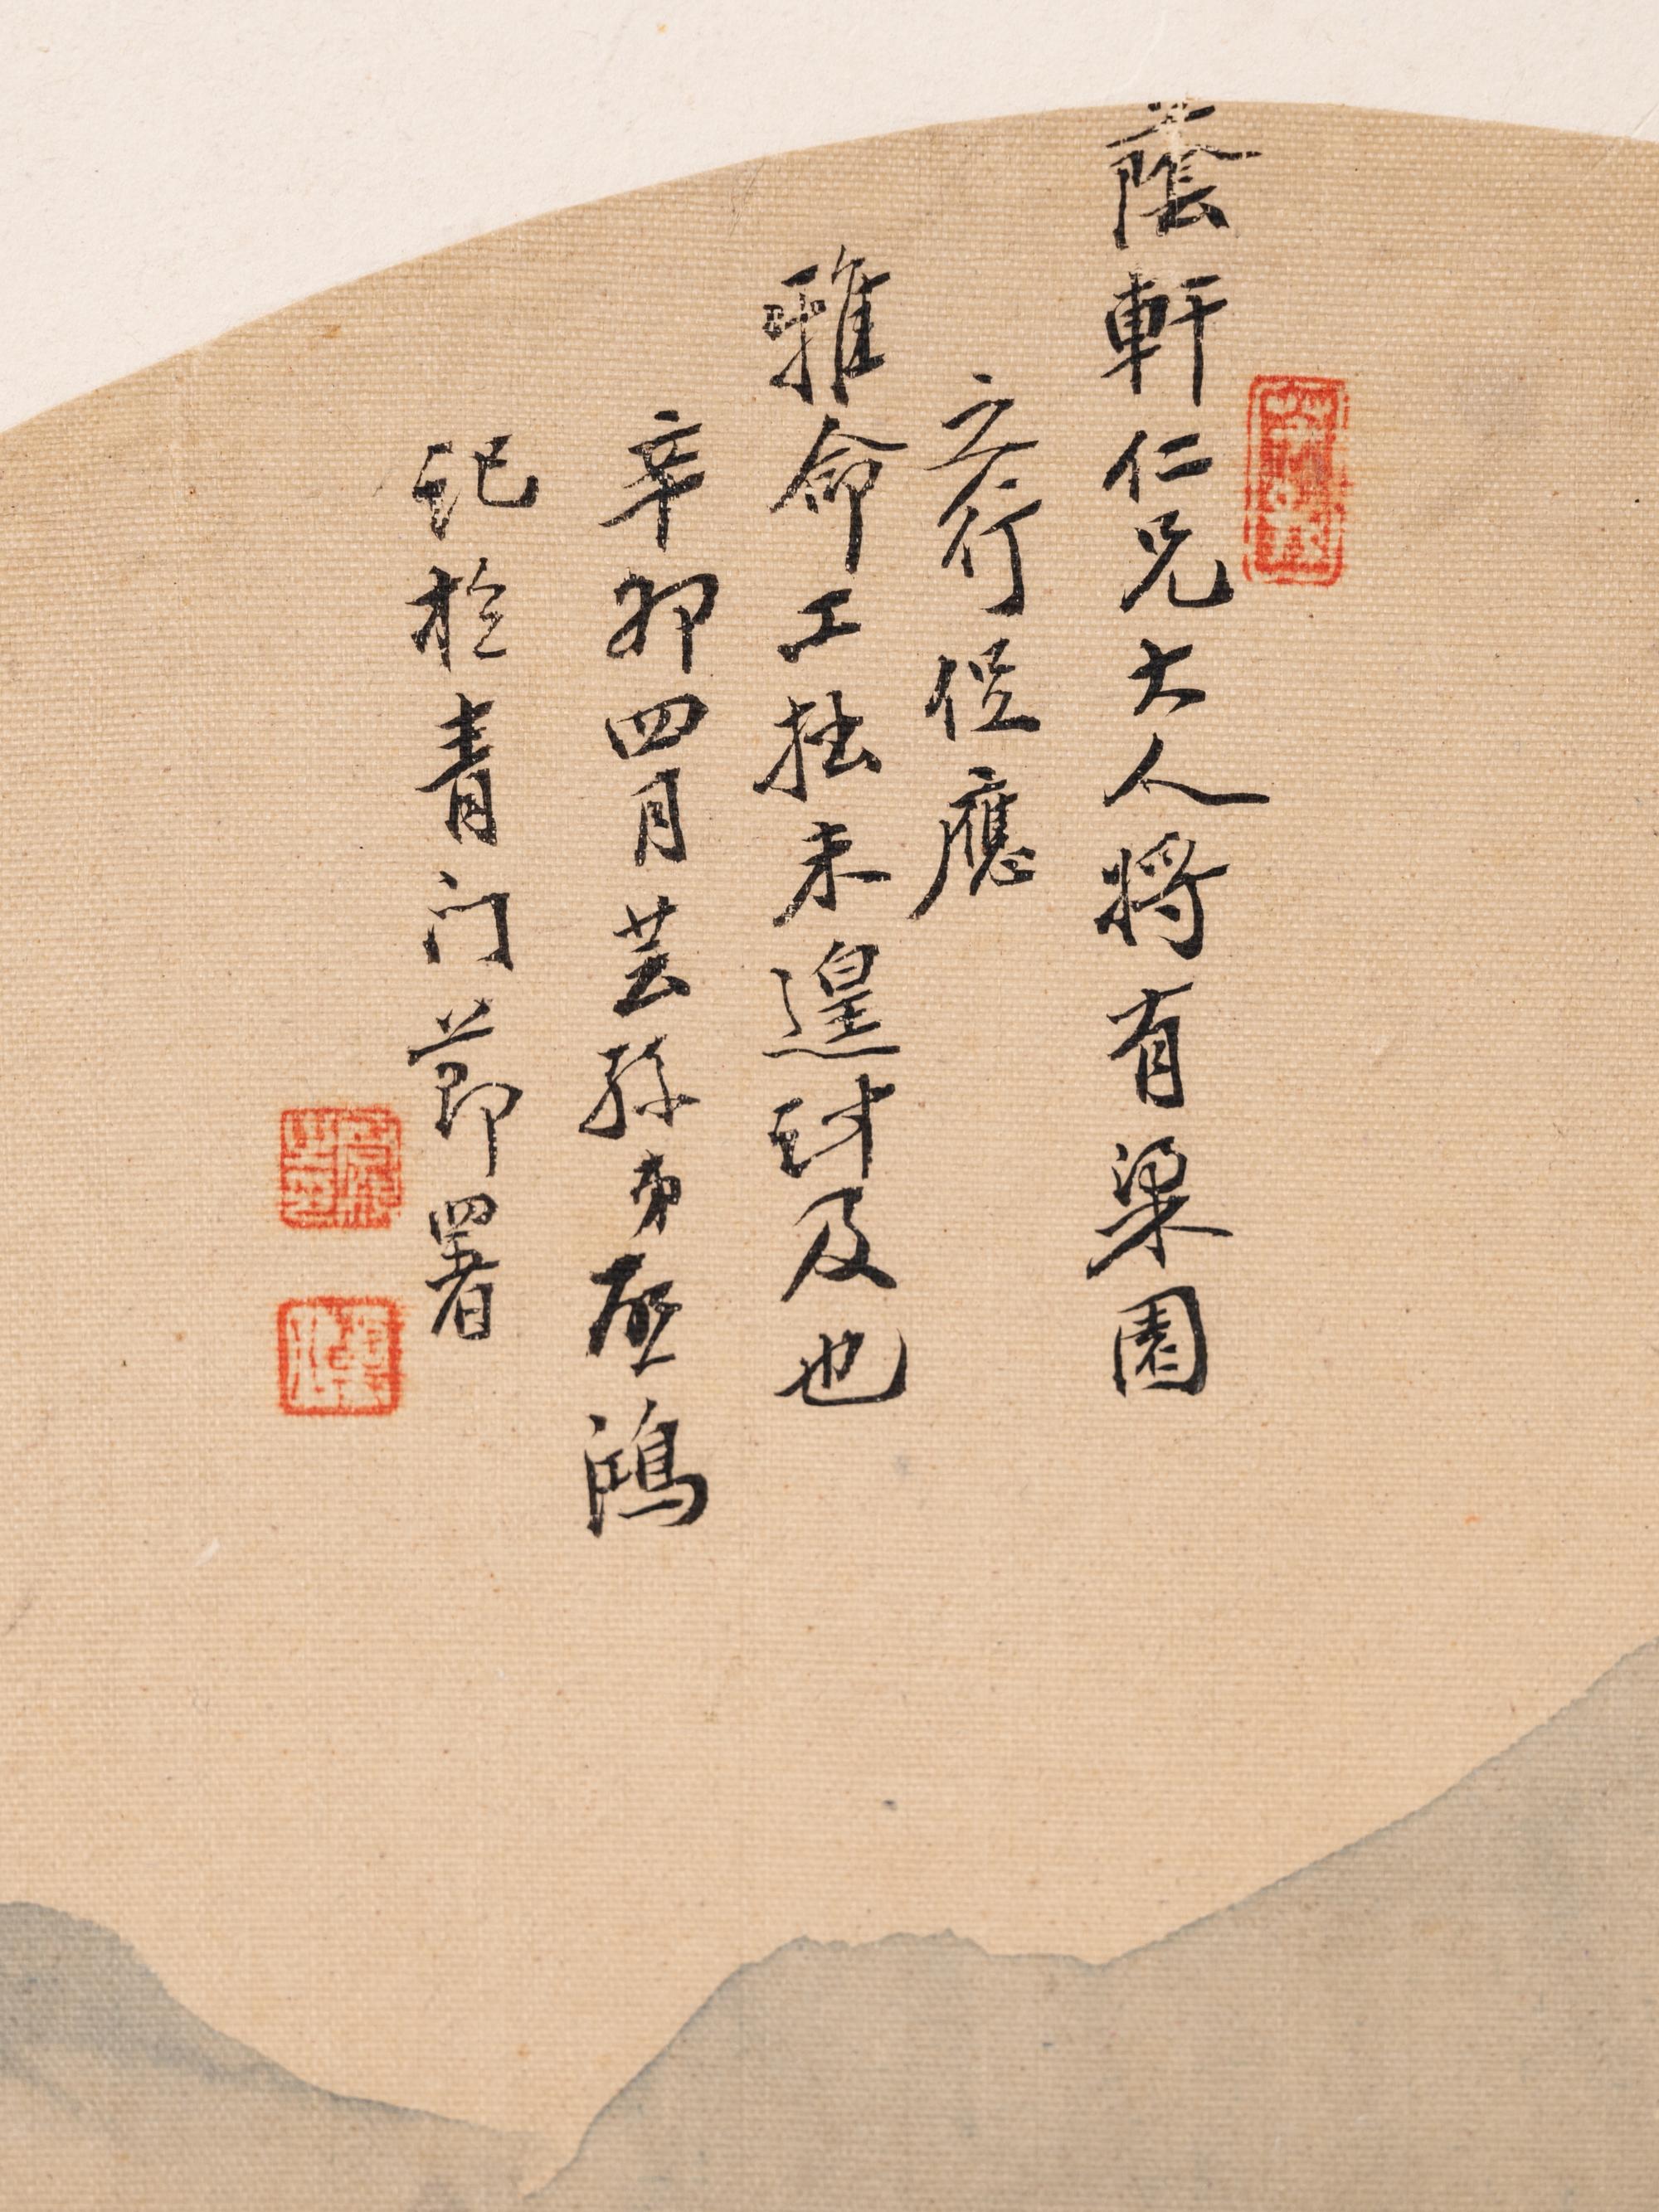 蔭軒仁兄大人將有梁園
之行促應
雅命工拙未遑計及也
辛卯四月芸孫弟啟鴻
記於青门節署